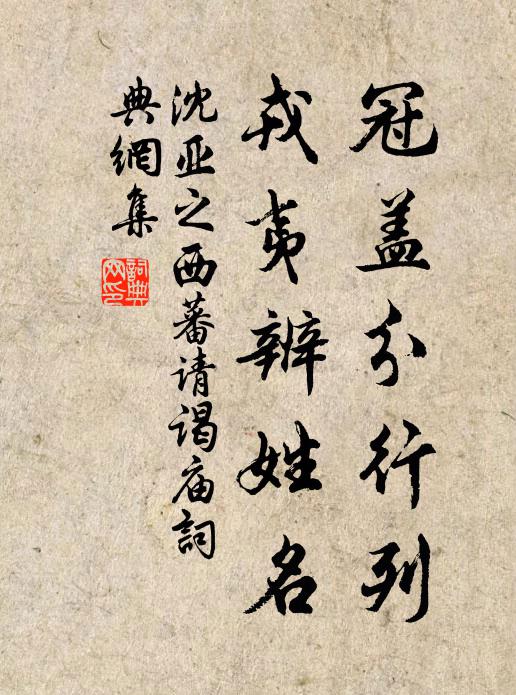 冠盖分行列
戎夷辨姓名
沈亚之西蕃请谒庙詞
典網集
詞典網印